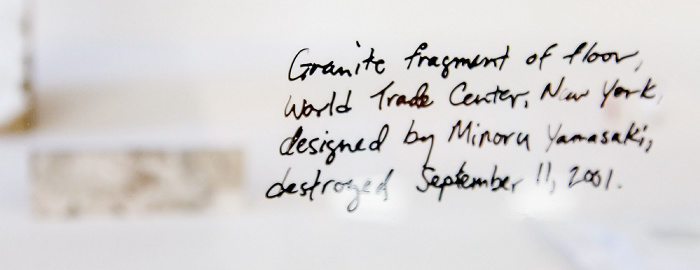 Granite fragment of floor,
World Trade Center, New York,
designed by Minoru Yamasaki,
destroyed September 11, 2001.